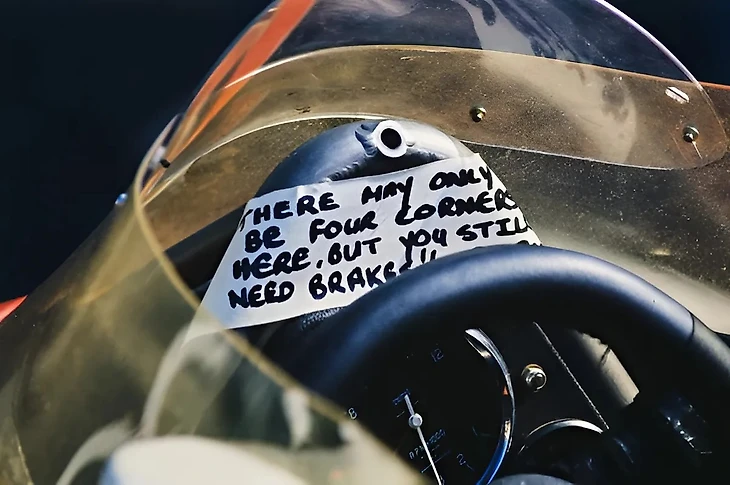 THERE MAY ONLY
BE FOUR CORNERS
HERE, BUT YOU STILL
NEED BRAKES!!
12
8
RPM
2